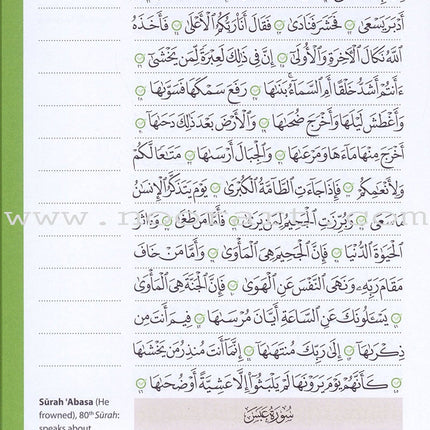 أَدْبَرَ يَسْعَىٰ ٢٢ فَحَشَرَ فَنَادَىٰ ٢٣ فَقَالَ أَنَا۠ رَبُّكُمُ ٱلْأَعْلَىٰ ٢٤ فَأَخَذَهُ
ٱللَّهُ نَكَالَ ٱلْـَٔاخِرَةِ وَٱلْأُولَىٰٓ ٢٥ إِنَّ فِى ذَٰلِكَ لَعِبْرَةً لِّمَن يَخْشَىٰٓ ٢٦
ءَأَنتُمْ أَشَدُّ خَلْقًا أَمِ ٱلسَّمَآءُ ۚ بَنَىٰهَا ٢٧ رَفَعَ سَمْكَهَا فَسَوَّىٰهَا ٢٨
وَأَغْطَشَ لَيْلَهَا وَأَخْرَجَ ضُحَىٰهَا ٢٩ وَٱلْأَرْضَ بَعْدَ ذَٰلِكَ دَحَىٰهَآ ٣٠
أَخْرَجَ مِنْهَا مَآءَهَا وَمَرْعَىٰهَا ٣١ وَٱلْجِبَالَ أَرْسَىٰهَا ٣٢ مَتَٰعًا لَّكُمْ
وَلِأَنْعَٰمِكُمْ ٣٣ فَإِذَا جَآءَتِ ٱلطَّآمَّةُ ٱلْكُبْرَىٰ ٣٤ يَوْمَ يَتَذَكَّرُ ٱلْإِنسَٰنُ
مَا سَعَىٰ ٣٥ وَبُرِّزَتِ ٱلْجَحِيمُ لِمَن يَرَىٰ ٣٦ فَأَمَّا مَن طَغَىٰ ٣٧ وَءَاثَرَ
ٱلْحَيَوٰةَ ٱلدُّنْيَا ٣٨ فَإِنَّ ٱلْجَحِيمَ هِىَ ٱلْمَأْوَىٰ ٣٩ وَأَمَّا مَنْ خَافَ
مَقَامَ رَبِّهِۦ وَنَهَى ٱلنَّفْسَ عَنِ ٱلْهَوَىٰ ٤٠ فَإِنَّ ٱلْجَنَّةَ هِىَ ٱلْمَأْوَىٰ
٤١ يَسْـَٔلُونَكَ عَنِ ٱلسَّاعَةِ أَيَّانَ مُرْسَىٰهَا ٤٢ فِيمَ أَنتَ مِن
ذِكْرَىٰهَآ ٤٣ إِلَىٰ رَبِّكَ مُنتَهَىٰهَآ ٤٤ إِنَّمَآ أَنتَ مُنذِرُ مَن يَخْشَىٰهَا
٤٥ كَأَنَّهُمْ يَوْمَ يَرَوْنَهَا لَمْ يَلْبَثُوٓا۟ إِلَّا عَشِيَّةً أَوْ ضُحَىٰهَا ٤٦
سُورَةُ عَبَسَ
Sūrah 'Abasa (He
frowned), 80th Sūrah:
speaks about